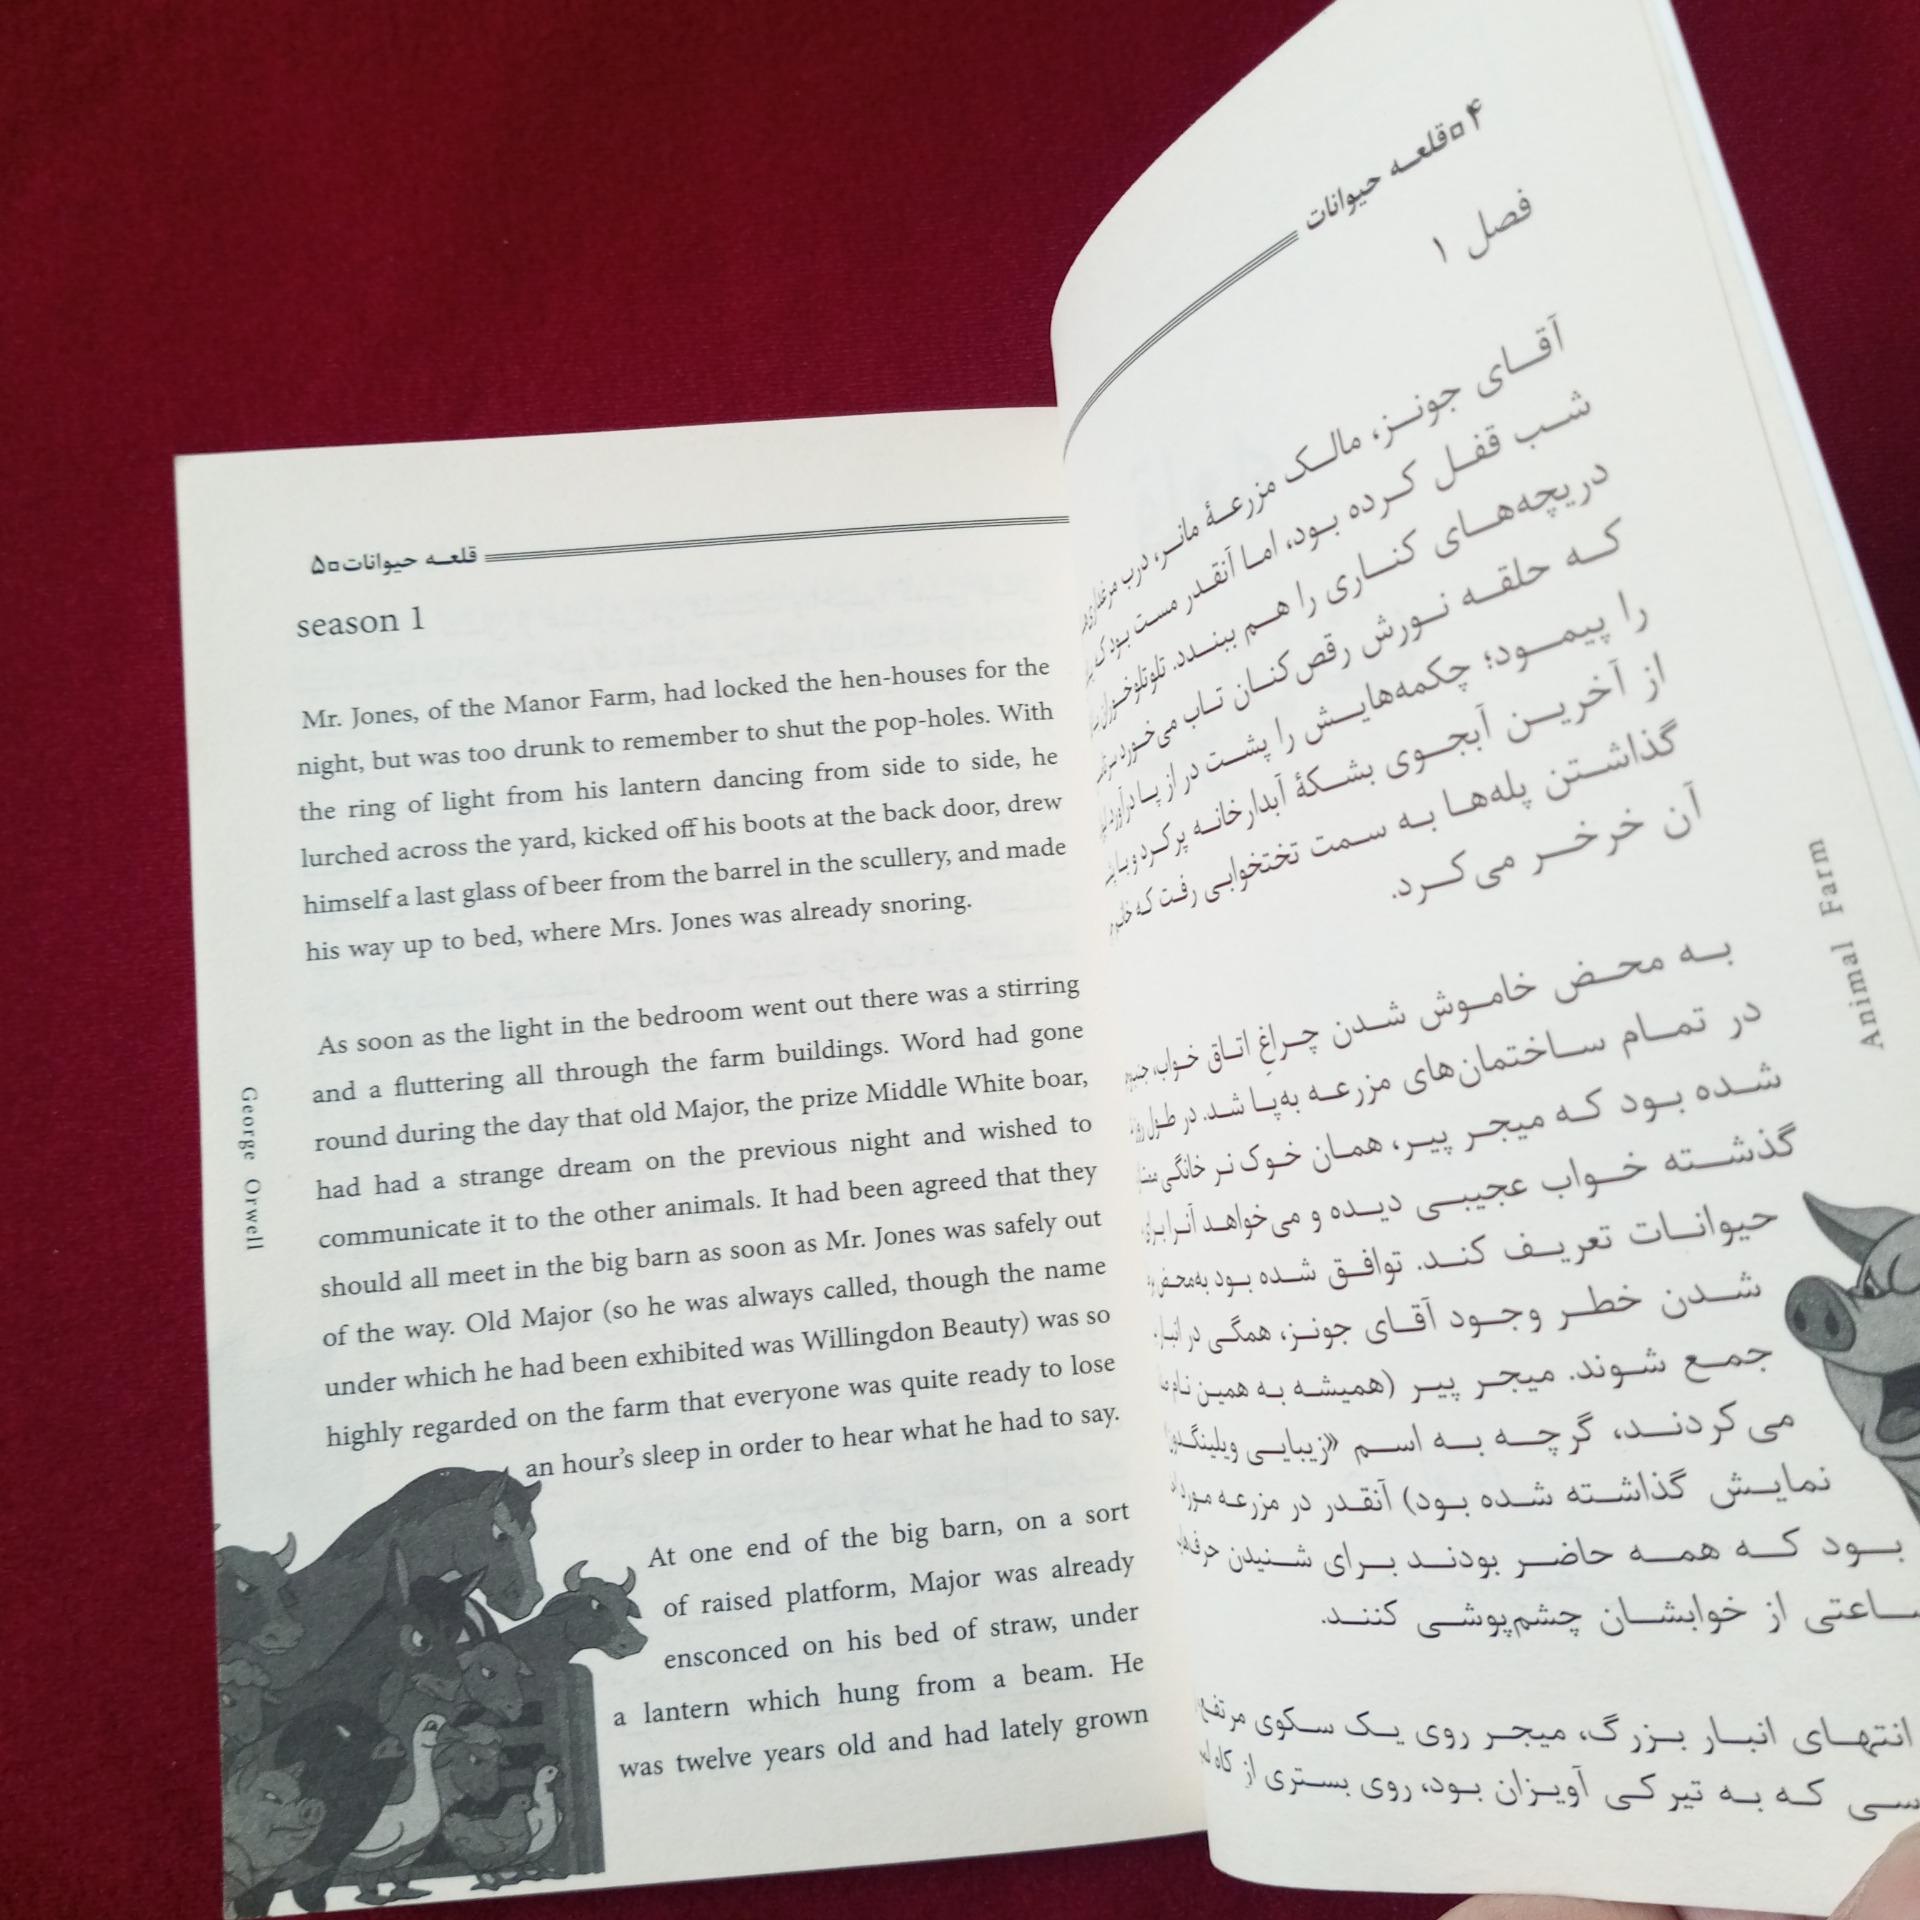 قلعه حیوانات□۵
season 1
Mr. Jones, of the Manor Farm, had locked the hen-houses for the
night, but was too drunk to remember to shut the pop-holes. With
the ring of light from his lantern dancing from side to side, he
lurched across the yard, kicked off his boots at the back door, drew
himself a last glass of beer from the barrel in the scullery, and made
his way up to bed, where Mrs. Jones was already snoring.
As soon as the light in the bedroom went out there was a stirring
and a fluttering all through the farm buildings. Word had gone
round during the day that old Major, the prize Middle White boar,
had had a strange dream on the previous night and wished to
communicate it to the other animals. It had been agreed that they
should all meet in the big barn as soon as Mr. Jones was safely out
of the way. Old Major (so he was always called, though the name
under which he had been exhibited was Willingdon Beauty) was so
highly regarded on the farm that everyone was quite ready to lose
an hour's sleep in order to hear what he had to say.
At one end of the big barn, on a sort
of raised platform, Major was already
ensconced on his bed of straw, under
a lantern which hung from a beam. He
was twelve years old and had lately grown
George Orwell
۴□قلعه حیوانات
فصل ۱
آقای جونز، مالک مزرعهٔ مانر، درب مرغداری‌ها
شب قفل کرده بود، اما آنقدر مست بود که
دریچه‌های کناری را هم ببندد. تلوتلوخوران
که حلقه نورش رقص‌کنان تاب می‌خورد
را پیمود؛ چکمه‌هایش را پشت در از پا درآورد
از آخرین آبجوی بشکهٔ آبدارخانه پر کرد و با
گذاشتن پله‌ها به سمت تختخوابی رفت که
آن خرخر می‌کرد.
به محض خاموش شدن چراغِ اتاق خواب،
در تمام ساختمان‌های مزرعه به‌پا شد. در طول
شده بود که میجر پیر، همان خوک نر خانگی
گذشته خواب عجیبی دیده و می‌خواهد آنرا برای
حیوانات تعریف کند. توافق شده بود به‌محض
شدن خطر وجود آقای جونز، همگی در انبار
جمع شوند. میجر پیر (همیشه به همین نام
می‌کردند، گرچه به اسم «زیبایی ویلینگدون»
نمایش گذاشته شده بود) آنقدر در مزرعه مورد
بود که همه حاضر بودند برای شنیدن
ساعتی از خوابشان چشم‌پوشی کنند.
انتهای انبار بزرگ، میجر روی یک سکوی مرتفع
که به تیرکی آویزان بود، روی بستری از کاه
Animal Farm